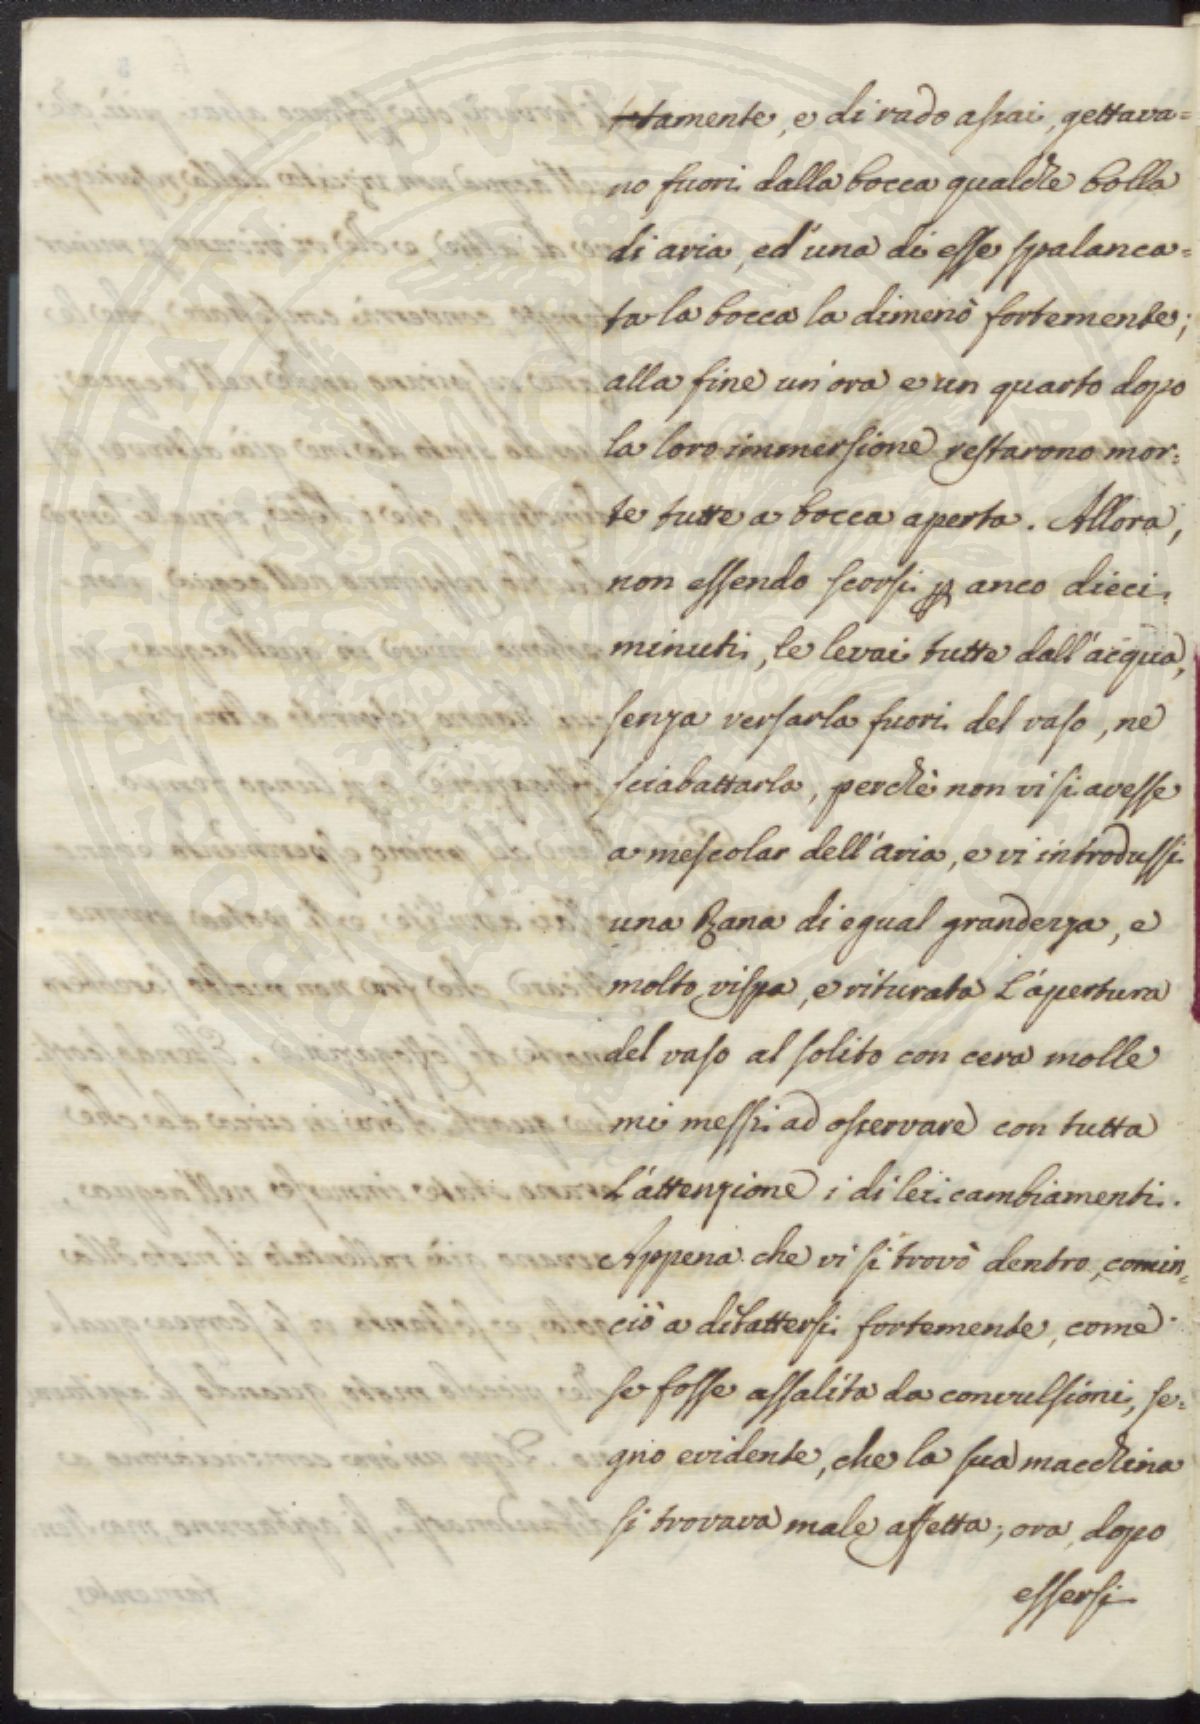 tamente, e di rado assai, gettava=
no fuori dalla bocca qualche bolla
di aria, ed una di esse spalanca=
ta la bocca la dimenò fortemente;
alla fine un'ora e un quarto dopo
la loro immersione restarono mor=
te tutte a bocca aperta. Allora,
non essendo scorsi anco dieci
minuti, le levai tutte dall'acqua,
senza versarla fuori del vaso, ne
sciabattarla, perchè non vi si avesse
a mescolar dell'aria, e vi introdussi
una Rana di egual grandezza, e
molto vispa, e riturata l'apertura
del vaso al solito con cera molle
mi messi ad osservare con tutta
l'attenzione i di lei cambiamenti.
Appena che vi si trovò dentro, comin=
ciò a dibattersi fortemente, come
se fosse assalita da convulsioni, se=
gno evidente, che la sua macchina
si trovava male affetta; ora, dopo
essersi